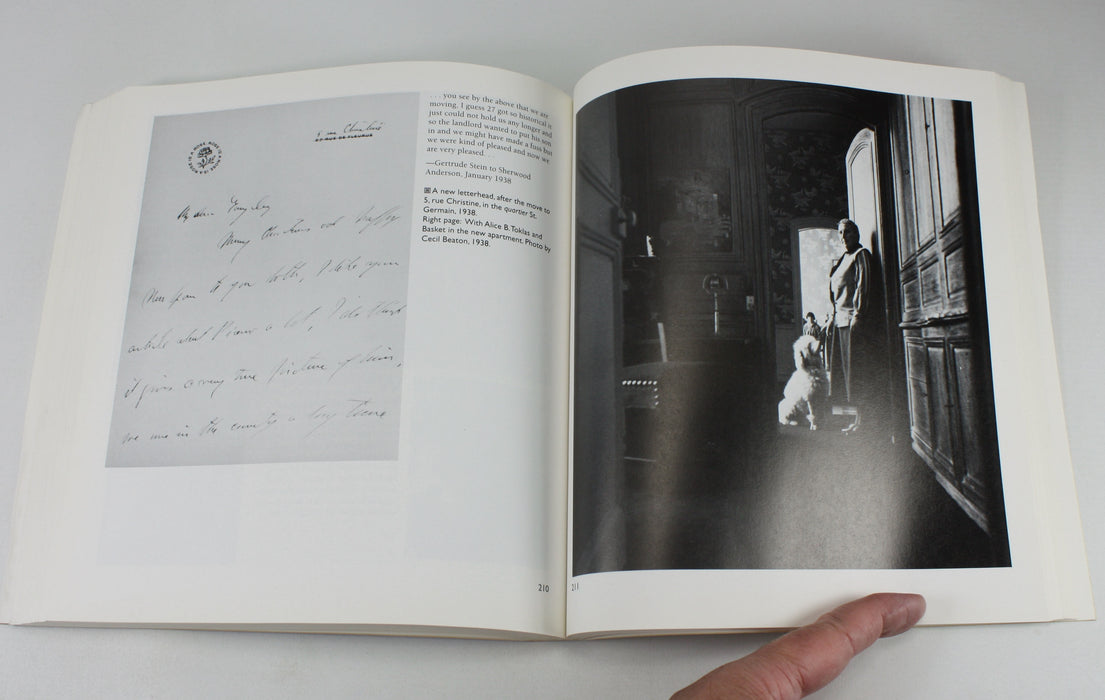 5 rue Christine
27 RUE DE FLEURUS
ROSE IS A ROSE IS A ROSE IS A ROSE
My dear
Many thanks and
from you both, I like your
article about Picasso a lot, I do think
it gives a very true picture of him,
we are in the country a long time
. . . you see by the above that we are
moving, I guess 27 got so historical it
just could not hold us any longer and
so the landlord wanted to put his son
in and we might have made a fuss but
we were kind of pleased and now we
are very pleased. . .
—Gertrude Stein to Sherwood
Anderson, January 1938
A new letterhead, after the move to
5, rue Christine, in the quartier St.
Germain, 1938.
Right page: With Alice B. Toklas and
Basket in the new apartment. Photo by
Cecil Beaton, 1938.
210
211